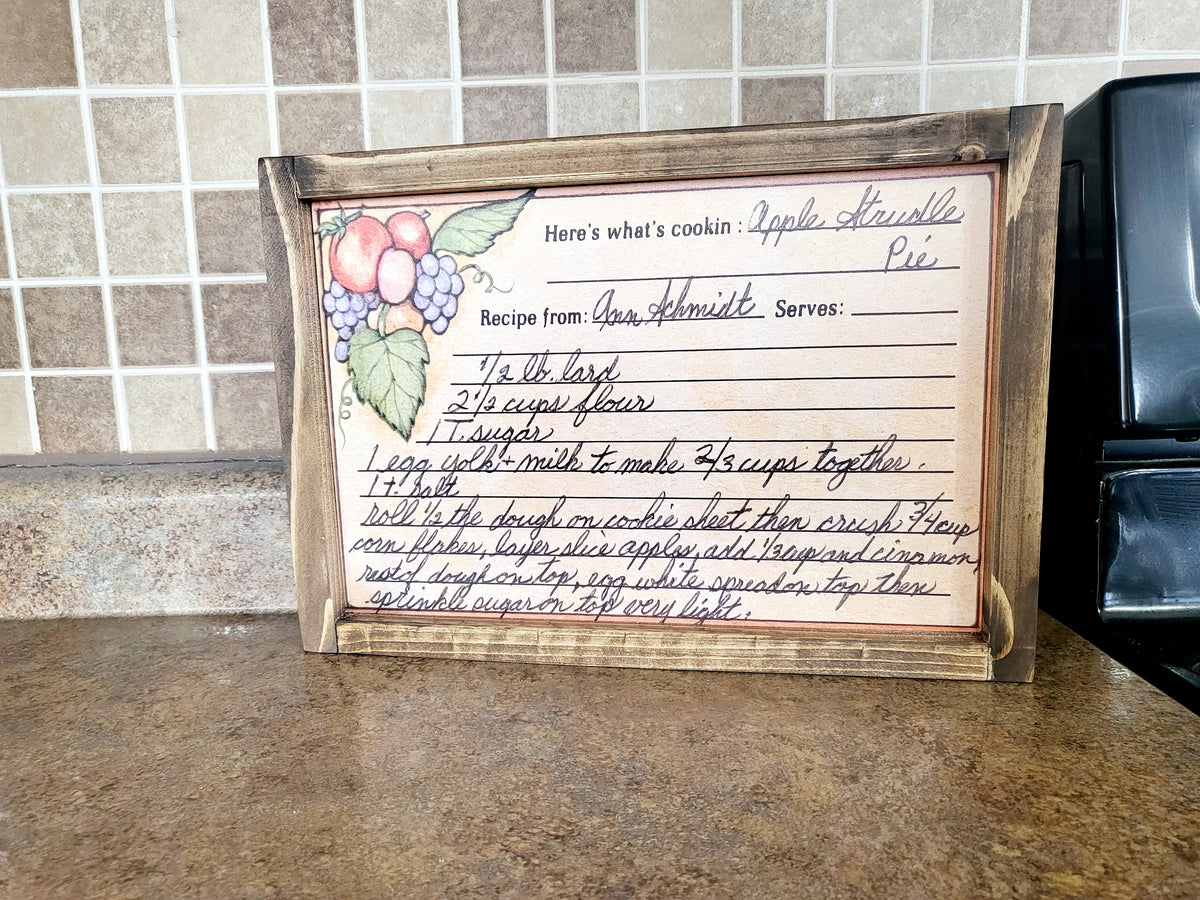 Here's what's cookin : Apple Strudle
Pie
Recipe from: Ann Schmidt Serves:
1/2 lb. lard
2 1/2 cups flour
1 T. sugar
1 egg yolk + milk to make 2/3 cups together.
1 t. salt
roll 1/2 the dough on cookie sheet then crush 3/4 cup
corn flakes, layer slice apples, add 1/3 cup and cinamon,
rest of dough on top, egg white spread on top then
sprinkle sugar on top very light.